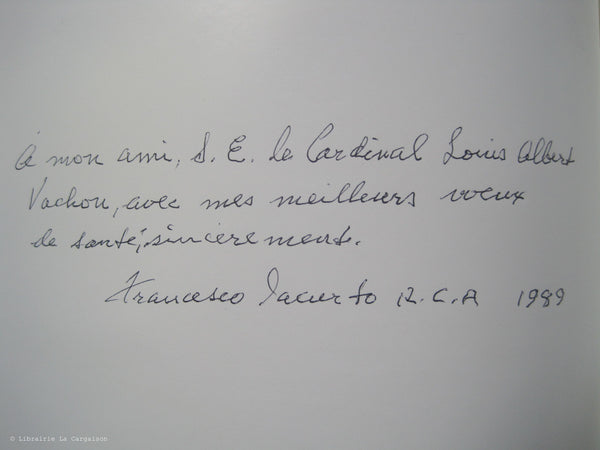 à mon ami, S. E. le Cardinal Louis Albert
Vachon, avec mes meilleurs voeux
de santé, sincerement.
Francesco Iacurto R.C.A 1989
© Librairie La Cargaison